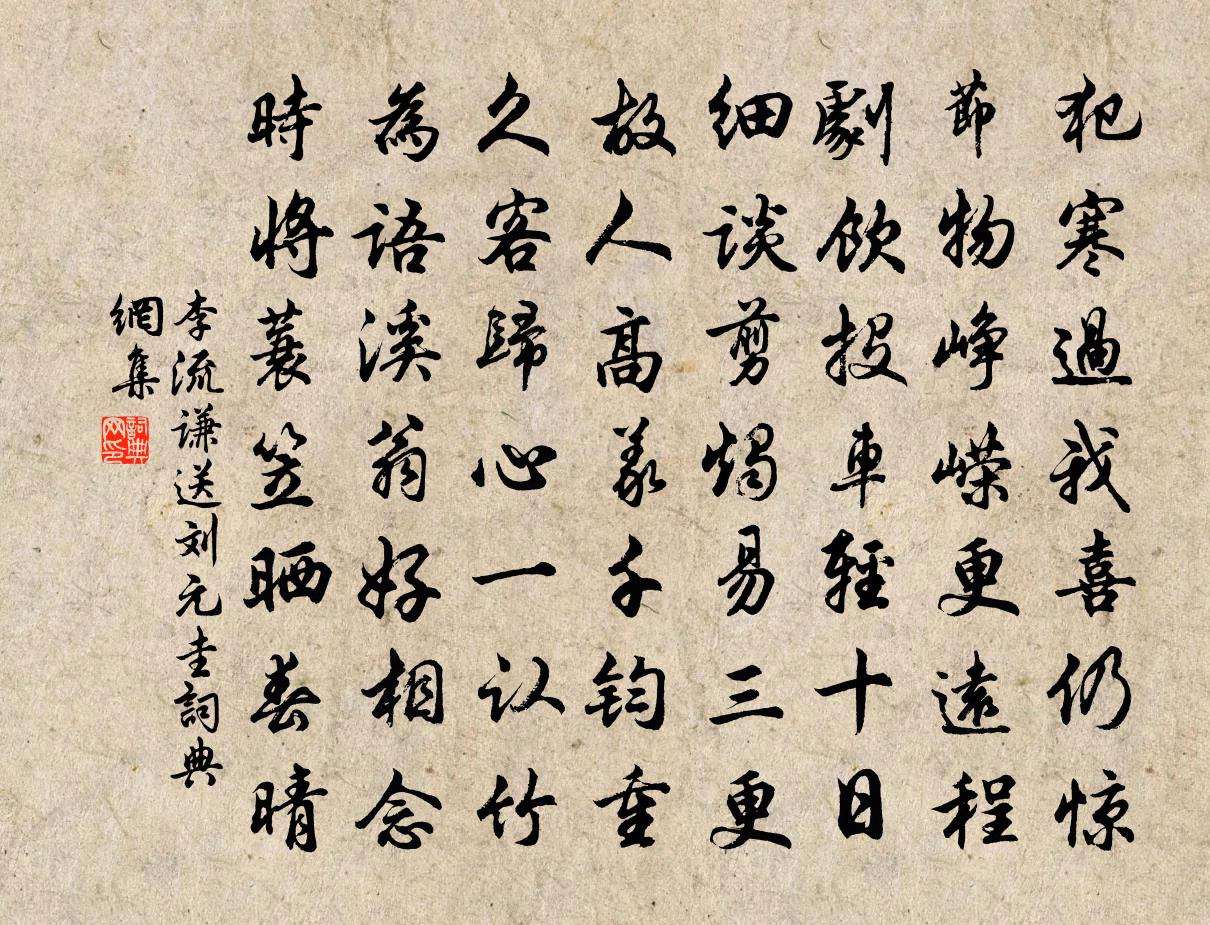 犯寒過我喜仍惊
節物峥嵘更遠程
劇飲投車輕十日
細談剪燭易三更
故人高義千鈞重
久客歸心一认竹
為語溪翁好相念
時將蓑笠晒春晴
李流謙送刘元圭詞典
網集
詞典
网印